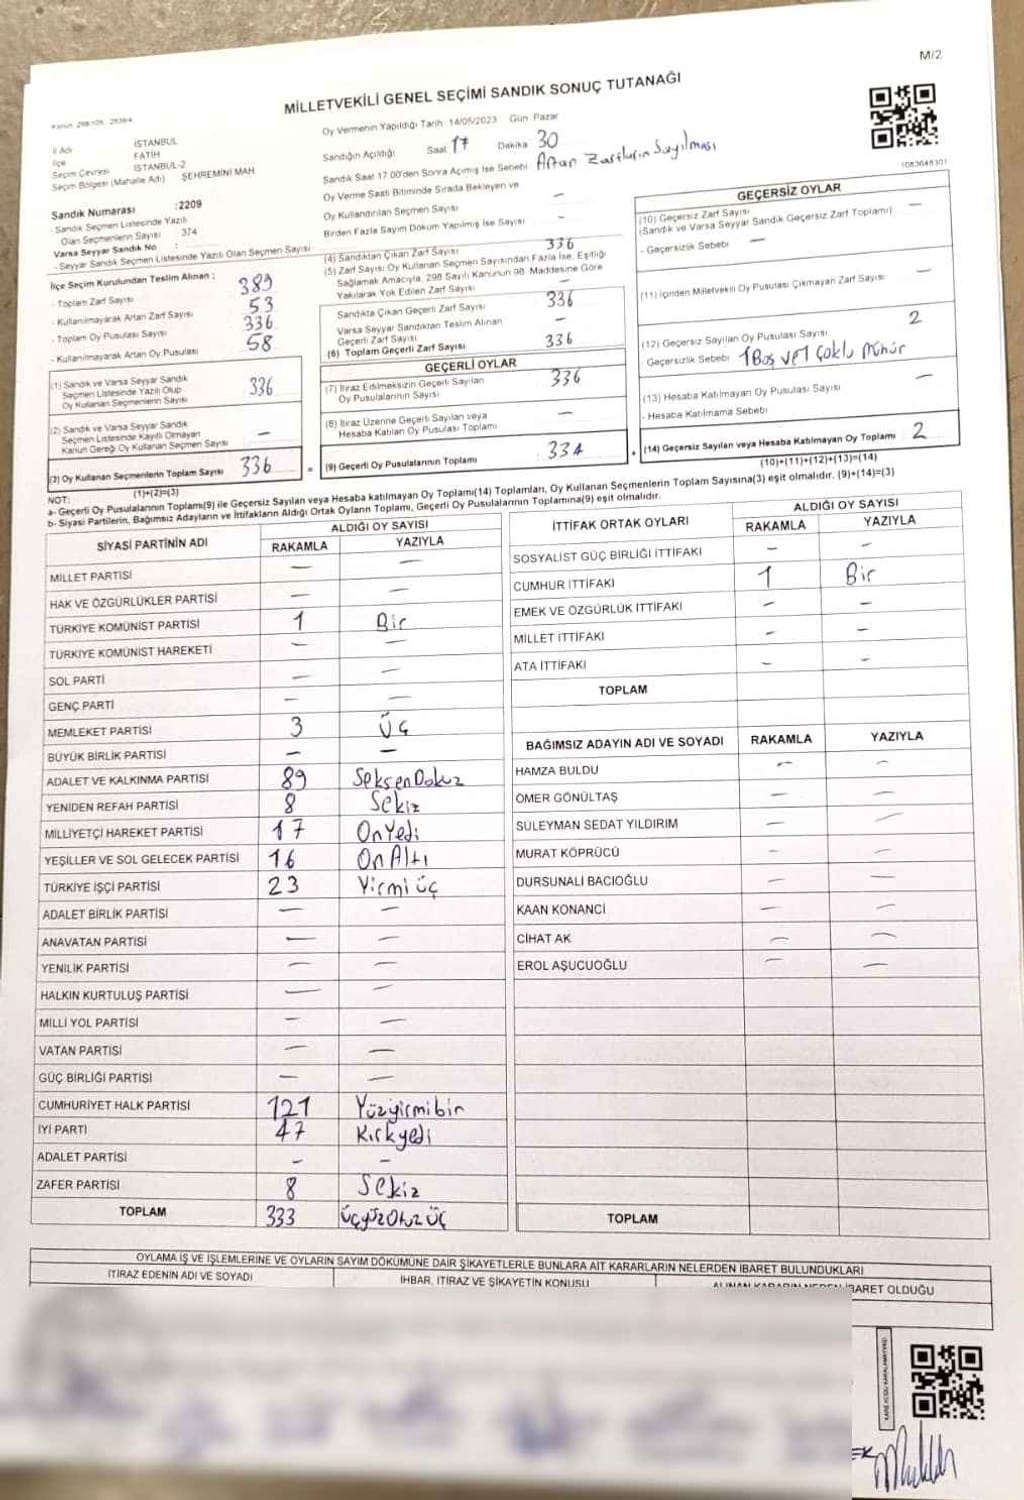 M/2
MİLLETVEKİLİ GENEL SEÇİMİ SANDIK SONUÇ TUTANAĞI
İl Adı İSTANBUL
İlçe FATİH
Seçim Çevresi İSTANBUL-2
Seçim Bölgesi (Mahalle Adı) ŞEHREMİNİ MAH
Sandık Numarası :2209
- Sandık Seçmen Listesinde Yazılı
Olan Seçmenlerin Sayısı 374
Varsa Seyyar Sandık No :
- Seyyar Sandık Seçmen Listesinde Yazılı Olan Seçmen Sayısı
Oy Vermenin Yapıldığı Tarih :14/05/2023 Gün Pazar
Sandığın Açıldığı Saat 17 Dakika 30
Sandık Saat 17.00'den Sonra Açılmış İse Sebebi Artan Zarfların Sayılması
Oy Verme Saati Bitiminde Sırada Bekleyen ve
Oy Kullandırılan Seçmen Sayısı –
Birden Fazla Sayım Döküm Yapılmış İse Sayısı –
1083648301
İlçe Seçim Kurulundan Teslim Alınan :
- Toplam Zarf Sayısı 389
- Kullanılmayarak Artan Zarf Sayısı 53
- Toplam Oy Pusulası Sayısı 336
- Kullanılmayarak Artan Oy Pusulası 58
(1) Sandık ve Varsa Seyyar Sandık
Seçmen Listesinde Yazılı Olup
Oy Kullanan Seçmenlerin Sayısı 336
(2) Sandık ve Varsa Seyyar Sandık
Seçmen Listesinde Kayıtlı Olmayan
Kanun Gereği Oy Kullanan Seçmen Sayısı –
(3) Oy Kullanan Seçmenlerin Toplam Sayısı 336
(1)+(2)=(3)
(4) Sandıktan Çıkan Zarf Sayısı 336
(5) Zarf Sayısı Oy Kullanan Seçmen Sayısından Fazla İse, Eşitliği
Sağlamak Amacıyla, 298 Sayılı Kanunun 98. Maddesine Göre
Yakılarak Yok Edilen Zarf Sayısı –
Sandıkta Çıkan Geçerli Zarf Sayısı 336
Varsa Seyyar Sandıktan Teslim Alınan
Geçerli Zarf Sayısı –
(6) Toplam Geçerli Zarf Sayısı 336
GEÇERLİ OYLAR
(7) İtiraz Edilmeksizin Geçerli Sayılan
Oy Pusulalarının Sayısı 336
(8) İtiraz Üzerine Geçerli Sayılan veya
Hesaba Katılan Oy Pusulası Toplamı –
= (9) Geçerli Oy Pusulalarının Toplamı 334
GEÇERSİZ OYLAR
(10) Geçersiz Zarf Sayısı –
(Sandık ve Varsa Seyyar Sandık Geçersiz Zarf Toplamı)
- Geçersizlik Sebebi –
(11) İçinden Milletvekili Oy Pusulası Çıkmayan Zarf Sayısı –
(12) Geçersiz Sayılan Oy Pusulası Sayısı 2
- Geçersizlik Sebebi 1 Boş ve 1 Çoklu Mühür
(13) Hesaba Katılmayan Oy Pusulası Sayısı –
- Hesaba Katılmama Sebebi
+ (14) Geçersiz Sayılan veya Hesaba Katılmayan Oy Toplamı 2
(10)+(11)+(12)+(13)=(14)
NOT:
a- Geçerli Oy Pusulalarının Toplamı(9) ile Geçersiz Sayılan veya Hesaba katılmayan Oy Toplamı(14) Toplamları, Oy Kullanan Seçmenlerin Toplam Sayısına(3) eşit olmalıdır. (9)+(14)=(3)
b- Siyasi Partilerin, Bağımsız Adayların ve İttifakların Aldığı Ortak Oyların Toplamı, Geçerli Oy Pusulalarının Toplamına(9) eşit olmalıdır.
SİYASİ PARTİNİN ADI ALDIĞI OY SAYISI
RAKAMLA YAZIYLA
MİLLET PARTİSİ – –
HAK VE ÖZGÜRLÜKLER PARTİSİ – –
TÜRKİYE KOMÜNİST PARTİSİ 1 Bir
TÜRKİYE KOMÜNİST HAREKETİ – –
SOL PARTİ – –
GENÇ PARTİ – –
MEMLEKET PARTİSİ 3 Üç
BÜYÜK BİRLİK PARTİSİ – –
ADALET VE KALKINMA PARTİSİ 89 SeksenDokuz
YENİDEN REFAH PARTİSİ 8 Sekiz
MİLLİYETÇİ HAREKET PARTİSİ 17 OnYedi
YEŞİLLER VE SOL GELECEK PARTİSİ 16 OnAltı
TÜRKİYE İŞÇİ PARTİSİ 23 Yirmi üç
ADALET BİRLİK PARTİSİ – –
ANAVATAN PARTİSİ – –
YENİLİK PARTİSİ – –
HALKIN KURTULUŞ PARTİSİ – –
MİLLİ YOL PARTİSİ – –
VATAN PARTİSİ – –
GÜÇ BİRLİĞİ PARTİSİ – –
CUMHURİYET HALK PARTİSİ 121 Yüzyirmibir
İYİ PARTİ 47 Kırkyedi
ADALET PARTİSİ – –
ZAFER PARTİSİ 8 Sekiz
TOPLAM 333 ÜçyüzOtuzÜç
İTTİFAK ORTAK OYLARI ALDIĞI OY SAYISI
RAKAMLA YAZIYLA
SOSYALİST GÜÇ BİRLİĞİ İTTİFAKI – –
CUMHUR İTTİFAKI 1 Bir
EMEK VE ÖZGÜRLÜK İTTİFAKI – –
MİLLET İTTİFAKI – –
ATA İTTİFAKI – –
TOPLAM
BAĞIMSIZ ADAYIN ADI VE SOYADI RAKAMLA YAZIYLA
HAMZA BULDU – –
ÖMER GÖNÜLTAŞ – –
SÜLEYMAN SEDAT YILDIRIM – –
MURAT KÖPRÜCÜ – –
DURSUNALİ BACIOĞLU – –
KAAN KONANCİ – –
CİHAT AK – –
EROL AŞUCUOĞLU – –
TOPLAM
OYLAMA İŞ VE İŞLEMLERİNE VE OYLARIN SAYIM DÖKÜMÜNE DAİR ŞİKAYETLERLE BUNLARA AİT KARARLARIN NELERDEN İBARET BULUNDUKLARI
İTİRAZ EDENİN ADI VE SOYADI İHBAR, İTİRAZ VE ŞİKAYETİN KONUSU ALINAN KARARIN NEDEN İBARET OLDUĞU